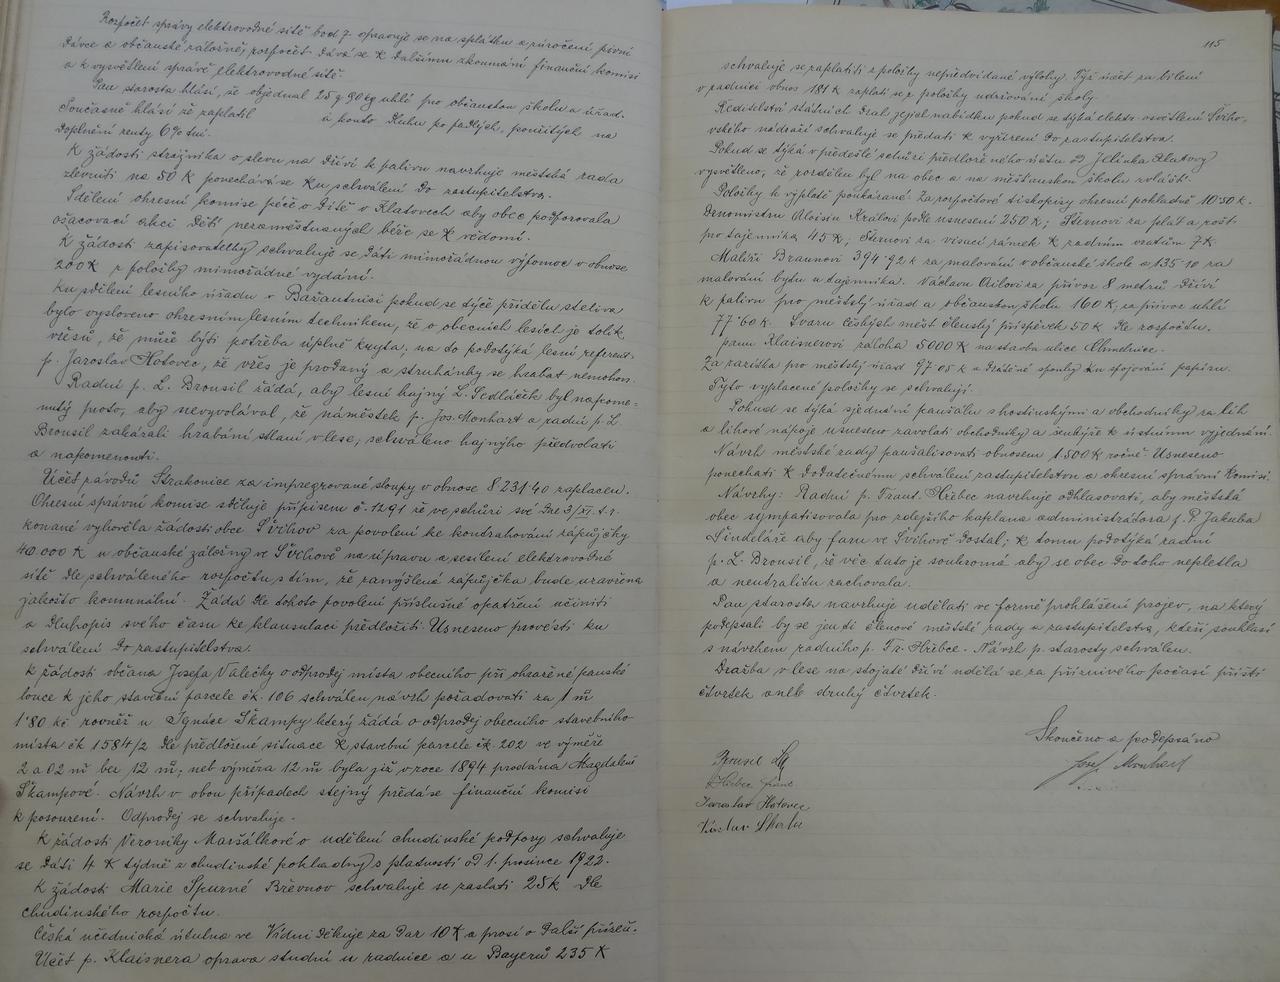 Rozpočet správy elektrovodné sítě bod 7 opravuje se na splátku a zúročení pivní
dávce a občanské záložně, rozpočet dává se k dalšímu zkoumání finanční komisi
a k vysvětlení správě elektrovodné sítě.
Pan starosta hlásí, že objednal 25 q 90 kg uhlí pro občanskou školu a úřad.
Současně hlásí že zaplatil á konto dluhu po padlých, použitých na
doplnění renty 6% tní.
K žádosti strážníka o slevu na dříví k palivu navrhuje městská rada
zlevniti na 50 K ponechává se ku schválení do zastupitelstva.
Sdělení okresní komise péče o dítě v Klatovech aby obec podporovala
ošacovací akci dětí nezaměstnaných béře se k vědomí.
K žádosti zapisovatelky schvaluje se dáti mimořádnou výpomoc v obnose
200 K z položky mimořádné vydání.
Ku sdělení lesního úřadu v Bažantnici pokud se týče přídělu steliva
bylo vysloveno okresním lesním technikem, že v obecních lesích je tolik
vřesu, že může býti potřeba úplně kryta, na to podotýká lesní referent
p. Jaroslav Hotovec, že vřes je prodaný a struhánky se hrabat nemohou.
Radní p. L. Brousil žádá, aby lesní hajný L. Sedláček byl napome-
nutý proto, aby nevyvolával, že náměstek p. Jos. Monhart a radní p. L.
Brousil zakázali hrabání stlaní v lese, schváleno hajnýho předvolati
a napomenouti.
Účet závodů Strakonice za impregnované sloupy v obnose 8231·40 zaplacen.
Okresní správní komise sděluje přípisem č. 1291 že ve schůzi své dne 3/XI. t. r.
konané vyhověla žádosti obce Švihov za povolení ke kontrahování zápůjčky
40.000 K u občanské záložny ve Švihově na úpravu a sesílení elektrovodné
sítě dle schváleného rozpočtu s tím, že zamýšlená zápůjčka bude uzavřena
jakožto komunální. Žádá dle tohoto povolení příslušné opatření učiniti
a dluhopis svého času ke klausulaci předložiti. Usneseno provésti ku
schválení do zastupitelstva.
K žádosti občana Josefa Valečky o odprodej místa obecního při ohražené panské
louce k jeho stavební parcele čk. 106 schválen návrh požadovati za 1 m
1·80 kč rovněž u Ignáce Škampy který žádá o odprodej obecního stavebního
místa čk 1584/2 dle předložené situace k stavební parcele čk. 202 ve výměře
2 a 02 m bez 12 m, neb výměra 12 m byla již v roce 1894 prodána Magdaleně
Škampové. Návrh v obou případech stejný předá se finanční komisi
k posouzení. Odprodej se schvaluje.
K žádosti Veroniky Maršálkové o udělení chudinské podpory schvaluje
se dáti 4 K týdně z chudinské pokladny s platností od 1. prosince 1922.
K žádosti Marie Spurné Břevnov schvaluje se zaslati 25 k dle
chudinského rozpočtu.
Česká učednická útulna ve Vídni děkuje za dar 10 K a prosí o další přízeň.
Účet p. Klaisnera oprava studní u radnice a u Bayerů 235 K
115
schvaluje se zaplatiti z položky nepředvídané výlohy. Týž účet za bílení
v radnici obnos 181 K zaplatí se z položky udržování školy.
Ředitelství státních drah, jejich nabídku pokud se týká elektr. osvětlení Šviho-
vského nádraží schvaluje se předati k vyřízení do zastupitelstva.
Pokud se týká v předešlé schůzi předloženého účtu Jelínka Klatovy
vysvětleno, že rozdělen byl na obec a na měšťanskou školu zvlášť.
Položky k výplatě poukázané. Za rozpočtové tiskopisy okresní pokladně 10·50 K.
Drnomistru Aloisiu Královi podle usnesení 250 K; Šternovi za plát a rošt
pro tajemníka 45 K; Šternovi za visací zámek k zadním vratům 7 K.
Malíři Braunovi 394·92 k za malování v občanské škole a 135·10 za
malování bytu u tajemníka. Václavu za přívoz 8 metrů dříví
k palivu pro městský úřad a občanskou školu 160 K, za přívoz uhlí
77·60 K. Svazu českých měst členský příspěvek 50 K dle rozpočtu.
panu Klaisnerovi záloha 5000 K na stavbu ulice Chmelnice.
Za razítka pro městský úřad 97·05 k a drátěné sponky ku spojování papíru.
Tyto vyplacené položky se schvalují.
Pokud se týká sjednání paušálu s hostinskými a obchodníky za líh
a lihové nápoje usneseno zavolati obchodníky a šenkýře k ústnímu vyjednání.
Návrh městské rady paušalisovati obnosem 1.500 K ročně. Usneseno
ponechati k dodatečnému schválení zastupitelstvu a okresní správní komisi.
Návrhy: Radní p. Frant. Hřebec navrhuje odhlasovati, aby městská
obec sympatisovala pro zdejšího kaplana administrátora p. P. Jakuba
Šindeláře aby faru ve Švihově dostal; k tomu podotýká radní
p. L. Brousil, že věc tato je soukromá aby se obec do toho nepletla
a neutralitu zachovala.
Pan starosta navrhuje udělati ve formě prohlášení projev, na který
podepsali by se jen ti členové městské rady a zastupitelstva, kteří souhlasí
s návrhem radního p. Fr. Hřebce. Návrh p. starosty schválen.
Dražba v lese na stojaté dříví udělá se za příznivého počasí příští
čtvrtek aneb druhý čtvrtek.
Skončeno a podepsáno
Josef Monhart
Brousil
Hřebec Frant
Jaroslav Hotovec
Václav